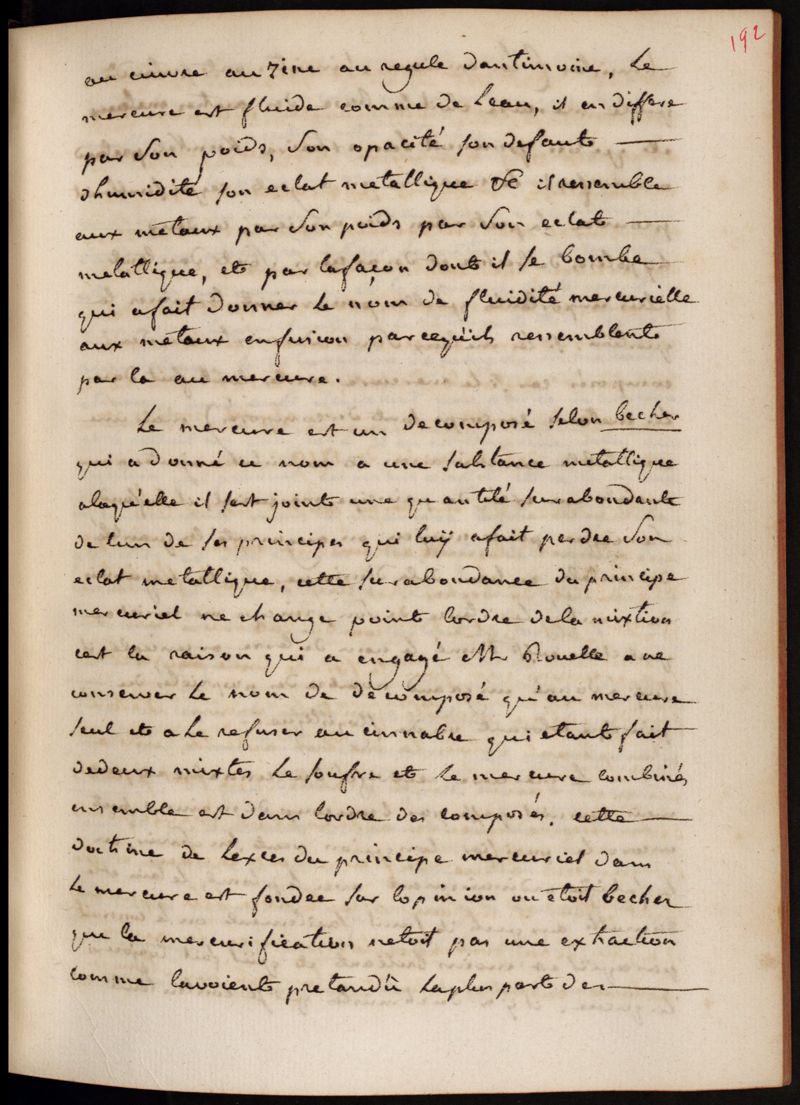 192
au cuivre au zinc au regule dantimoine, Le
mercure est fluide comme de Leau, il en differe
par Son poids, Son opacité son defaut
dhumidité son eclat metallique &c il ressemble
aux metaux par Son poids par Son eclat
metallique, et par lafaçon dont il Se bombe
qui afait Donner Le nom de fluidité mercurielle
aux metaux enfusion parcequ'ils ressemblent
par la au mercure.
Le mercure est un decomposé selon becher
qui adonné ce nom a une Substance metallique
alaquelle il sest joint une quantité surabondante
de lun de ses principes qui luÿ afait perdre Son
eclat metallique, cette surabondance du principe
mercuriel ne change point lordre dela mixtion
cest la raison qui a engagé Mr Rouelle a ne
conserver Le nom de decomposé qu'au mercure
seul et a Le refuser au cinnabre qui etant fait
dedeux mixtes Le soufre et Le mercure combinés
ensemble est dans lordre des composés. cette
doctrine de Lexces du principe mercuriel dans
Le mercure est fondée sur lopinion ou etoit becher
que la mercurification netoit pas une extraction
comme lavoient pretandû Laplus part des